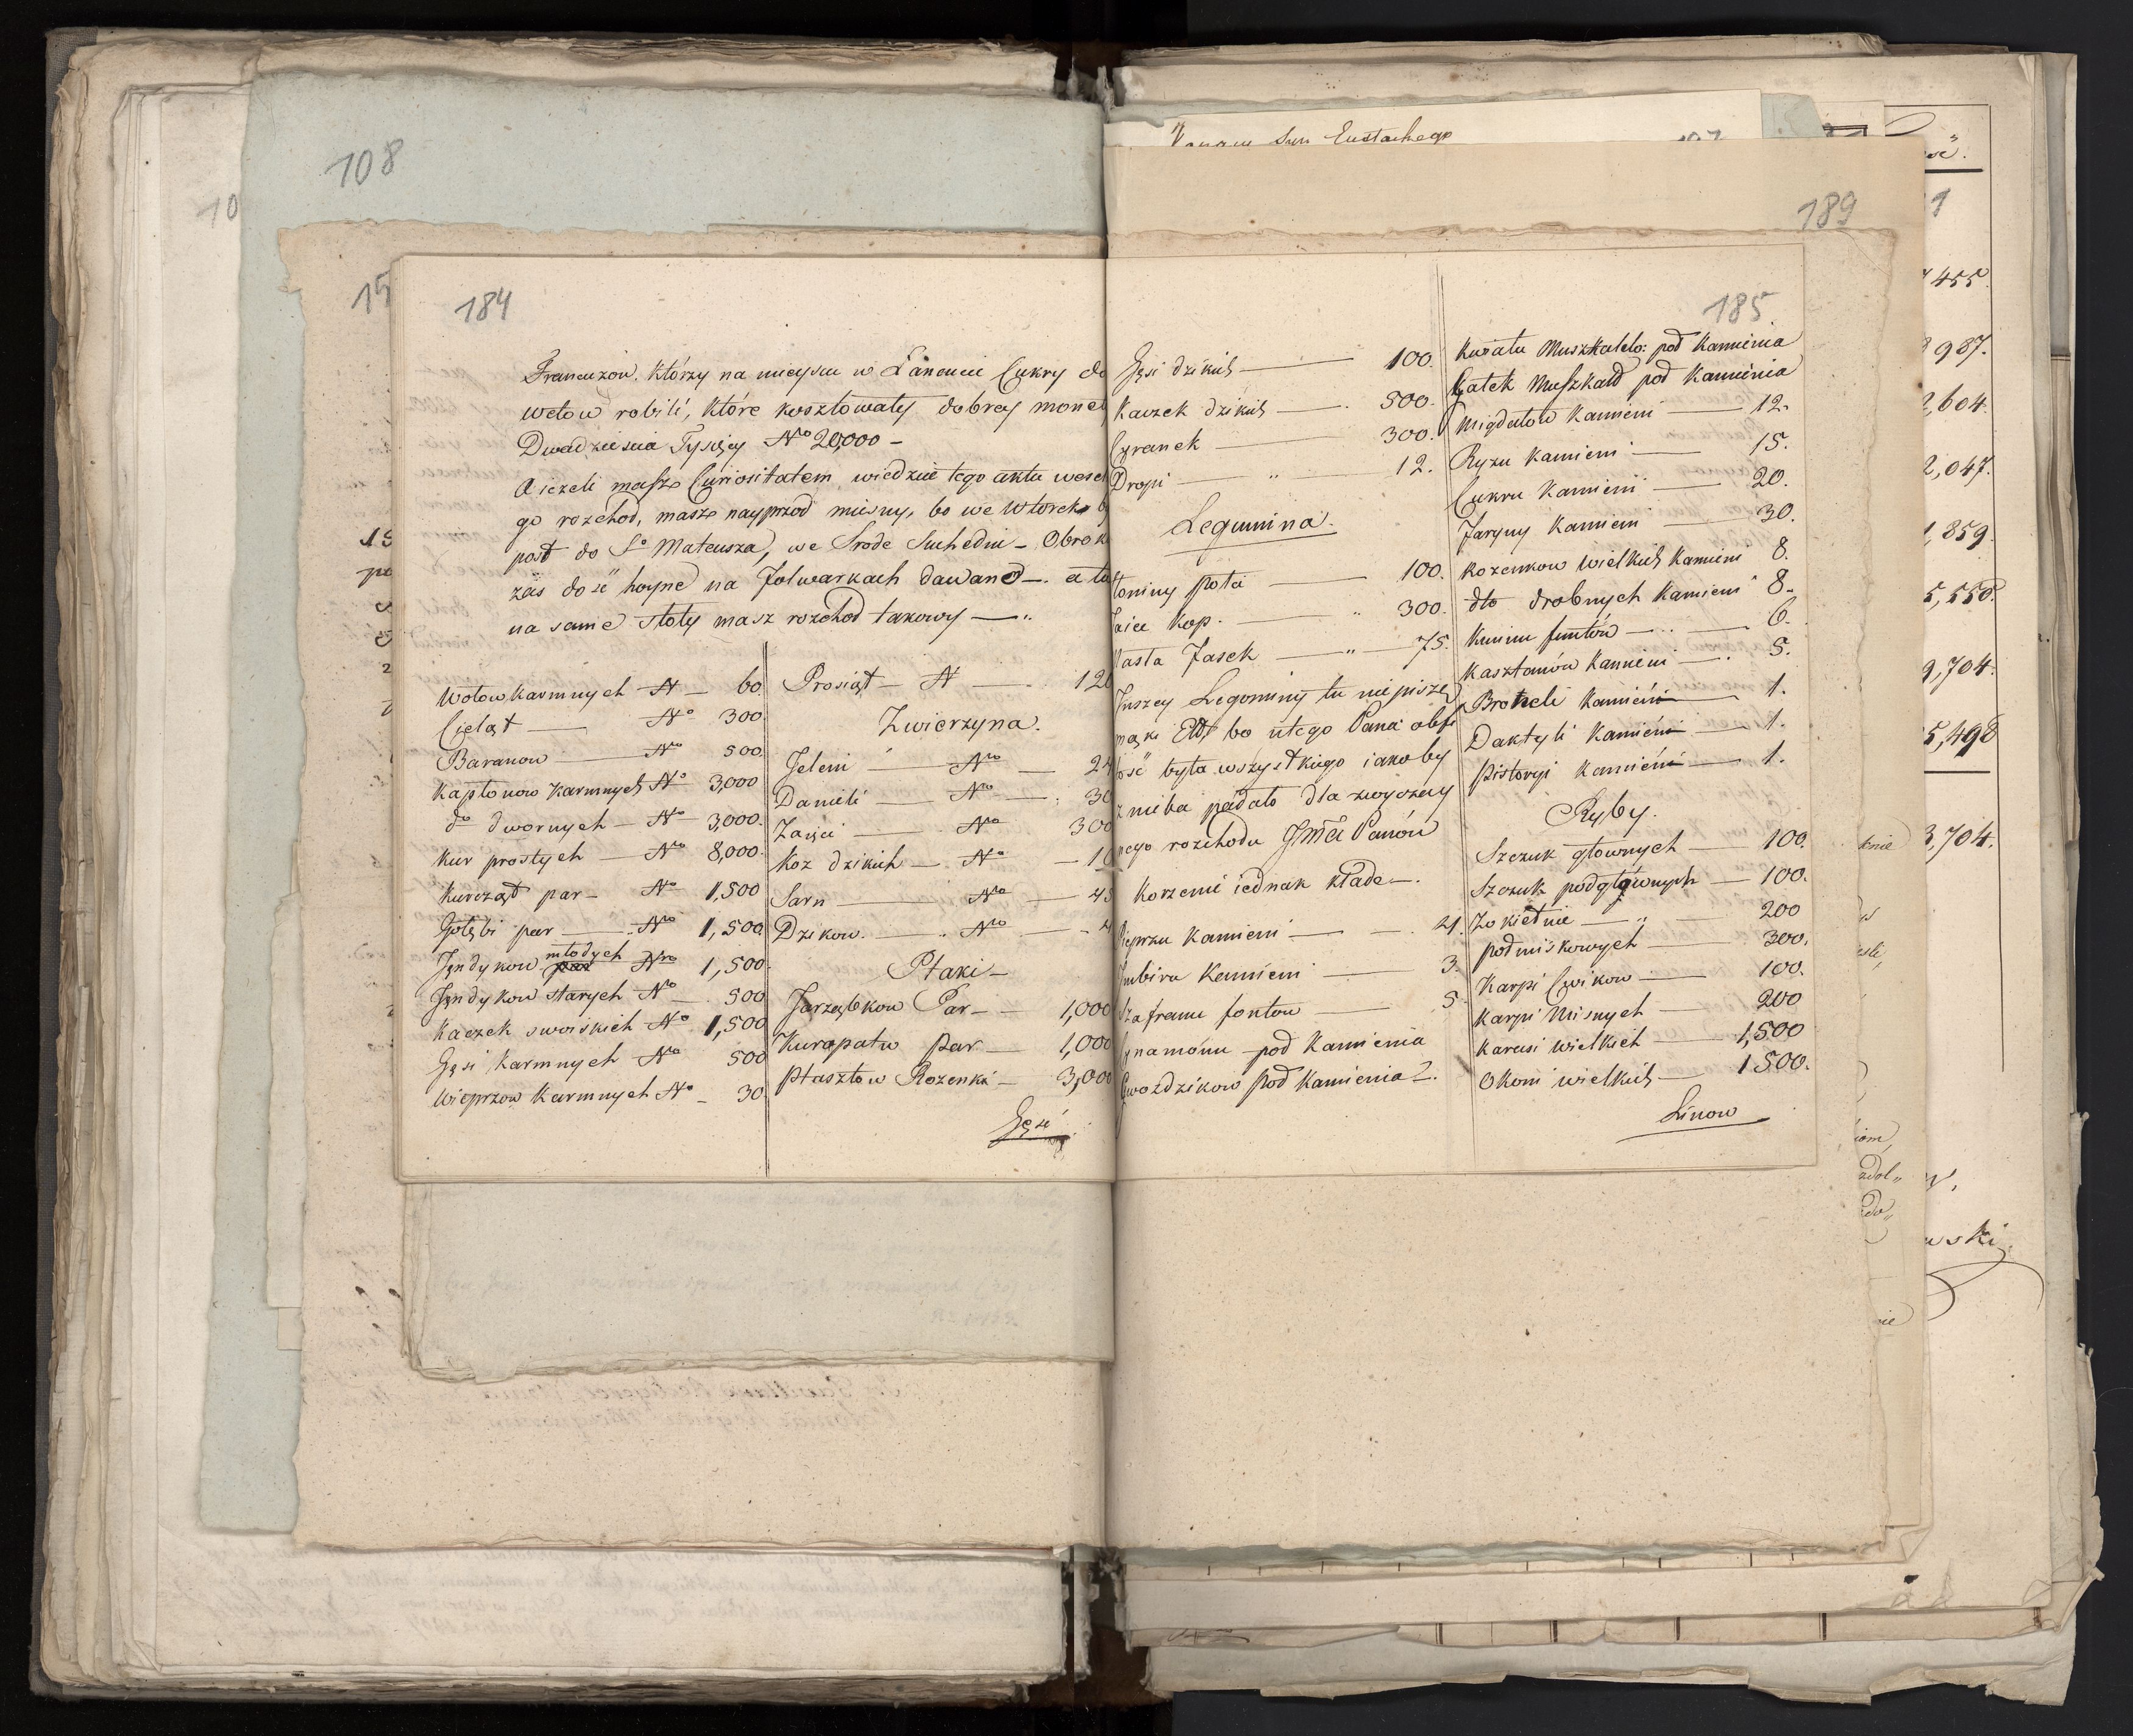 108
184
Francuzow. Którzy na mieyscu w Łancucie Cukry do
wetow robili, które kosztowały dobrey monet
Dwadziescia Tysięcy No 20,000 –
A ieżeli masz Curiositatem wiedziec tego aktu wesel
go rozchod, masz nayprzod miesny, bo we Wtorek b
post do So Mateusza, we Srode Suchedni – Obrok
zaś dosć hoyne na folwarkach dawano –. a t
na same stoły masz rozchod takowy —..
Wołow karmnych N – 60
Cieląt — No 300
Baranow — No 500
Kapłonow karmnych No 3,000
do dwornych — No 3,000.
Kur prostych — No 8,000.
Kurcząt par – No 1,500
Gołębi par — No 1,500
młodych
Jędykow par Nro 1,500.
Jędykow starych No — 500
Kaczek swoiskich No 1,500
Gęsi karmnych No 500
Wieprzow karmnych No – 30
Prosiąt — N — 120
Zwierzyna.
Jeleni — No — 24
Danieli — No —. 30
Zaięci — No 300
Koz dzikich — No — 10
Sarn — No — 45
Dzikow. — No – 4
Ptaki –
Jarząbkow Par – – 1,000
Kuropatw Par — 1,000
Ptasztow Rozenki – 3,000
Gęsi
189
185
Gęsi dzikich — 100.
Kaczek dzikich — 500.
Cyranek — 300.
Dropi — „ — 12.
Legumina.
łoniny połci — 100.
Jaiec kop. — „ 300.
Masła Fasek — „ — 75.
Jnszey Legominy tu niepiszę
mąki Ett bo utego Pana obfi
tość była wszystkiego iakoby
z nieba padało dla zwyczay
nego rozchodu Jmci Panów
Korzeni iednak kłade –.
Pieprzu Kamieni — –. 21.
Jmbiru Kamieni — 3.
Szafranu fontow — 5
Cynamonu pod Kamienia
Gwoździkow pod Kamienia 2.
Kwiatu Muszkateło: pod Kamienia
Gałek Muszkató pod Kamienia
Migdałow Kamieni — 12.
Ryzu Kamieni — 15.
Cukru Kamieni — 20.
Jaryny Kamieni — 30.
Rozenkow wielkich Kamieni 8.
dto drobnych Kamieni 8.
Kminu funtów — 6.
Kasztanów Kamieni —. 5.
Broneli Kamieni — 1.
Daktyli Kamieni — 1.
Pistoryi Kamieni — 1.
Ryby.
Szczuk głownych — 100.
Szczuk podgłownych — 100.
Łokietnie — „ — 200
podmiskowych — 300.
Karpi Cwikow — 100.
Karpi Misnych — 200
Karasi wielkich — 1,500
Okoni wielkich — 1500.
Linow
455.
987.
2,604.
2,047.
1,859.
5,550.
9,704.
5,498
3,704.